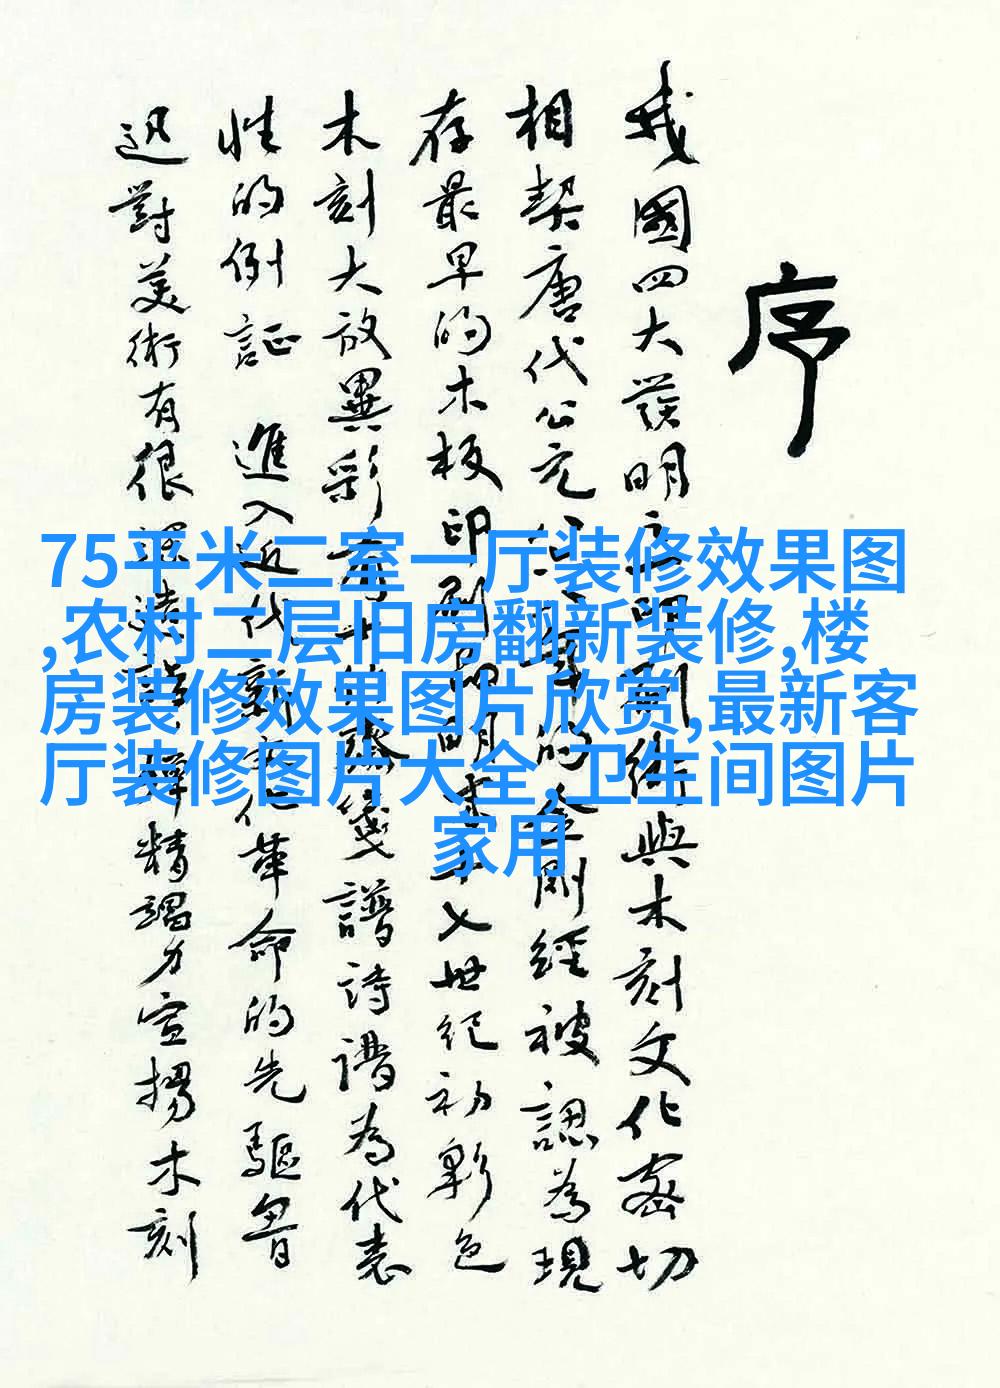 序
我國四大發明之 刷術與木刻文化密切
相契唐代公元 年的金剛經被認為現
存最早的木板印刷品明末十七世紀初彩色
木刻大放異彩 齋箋譜詩譜為代表
性的例証 進入近代新文化革命的先驅魯
迅對美術有很深造詣 精竭力宣揚木刻
75平米二室一厅装修效果图
,农村二层旧房翻新装修,楼
房装修效果图片欣赏,最新客
厅装修图片大全,卫生间图片
家用